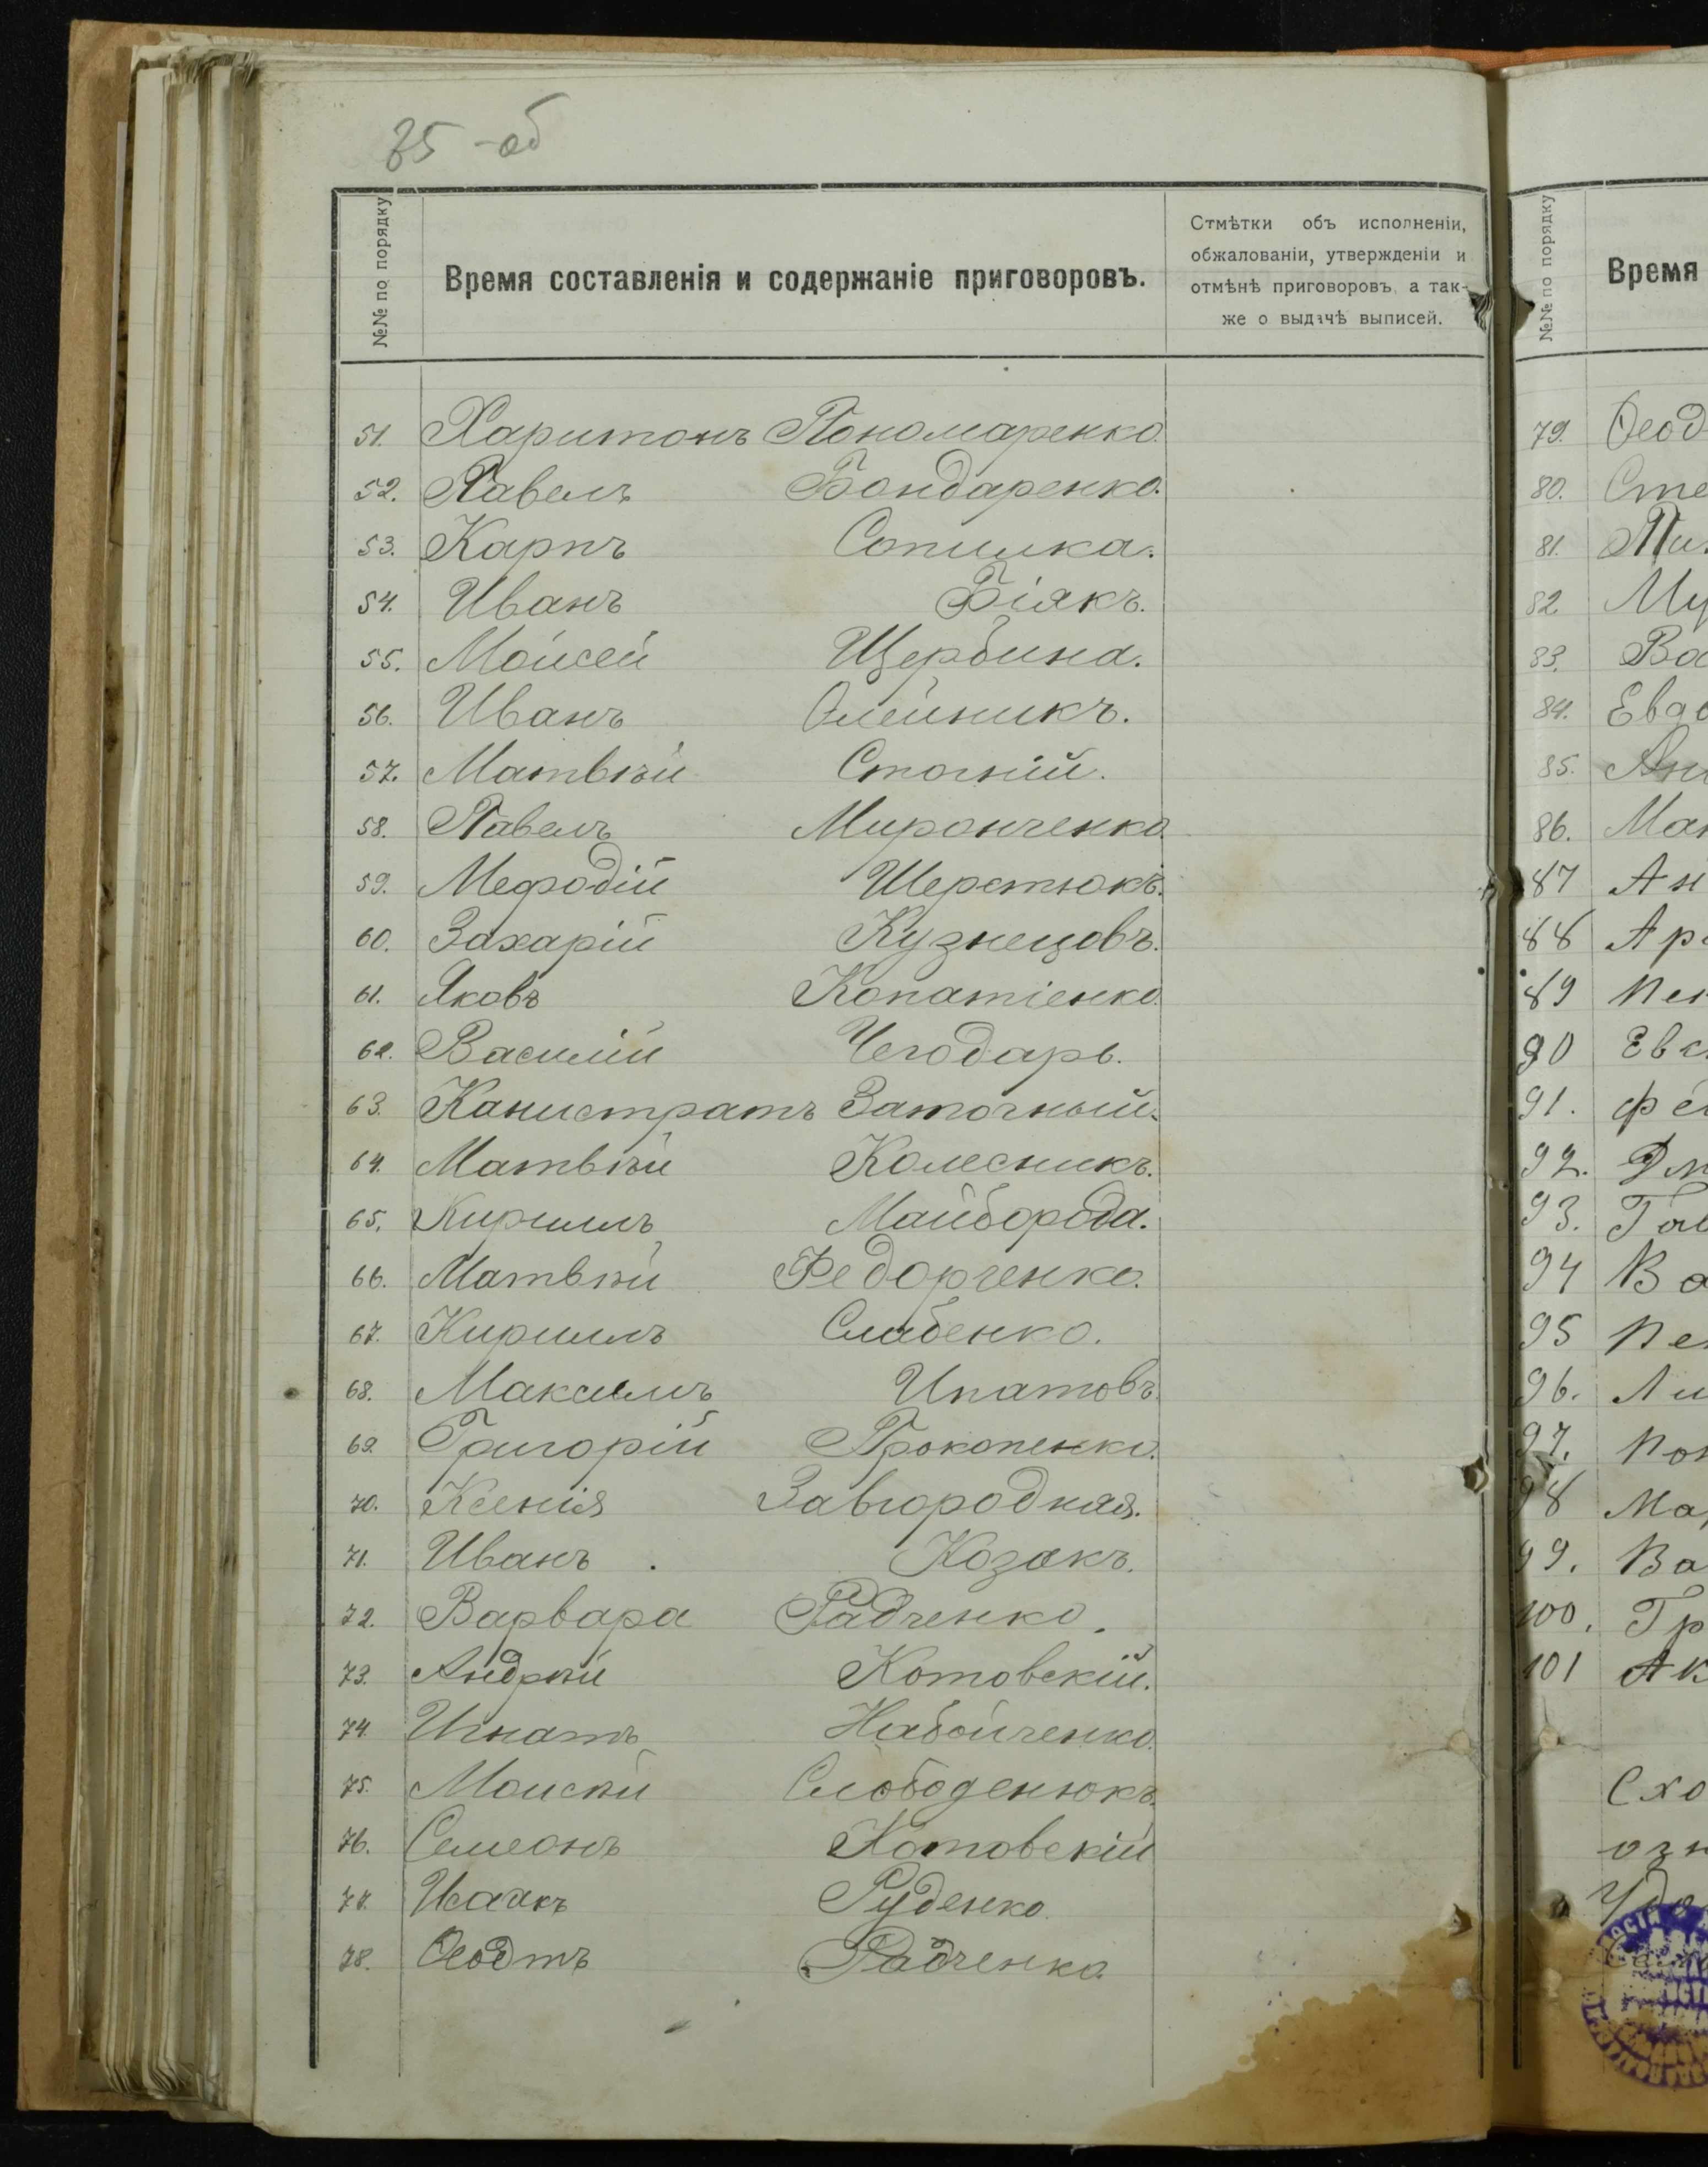 75-об
№№ по порядку
Время составленія и содержаніе приговоровъ.
Отмѣтки объ исполненіи,
обжалованіи, утвержденіи и
отмѣнѣ приговоровъ, а так-
же о выдачѣ выписей.
51. Харитонъ Пономаренко.
52. Павелъ Бондаренко.
53. Карпъ Сопилка.
54. Иванъ Біякъ.
55. Моисей Щербина.
56. Иванъ Олейникъ.
57. Матвѣй Стогній.
58. Павелъ Миронченко.
59. Мефодій Шерстюкъ.
60. Захарій Кузнецовъ.
61. Яковъ Копатіенко.
62. Василій Чегодарь.
63. Канистратъ Заточный.
64. Матвѣй Колесникъ.
65. Кирилъ Майборода.
66. Матвѣй Федорченко.
67. Кирилъ Слабенко.
68. Максимъ Ипатовъ.
69. Григорій Прокопенко.
70. Ксенія Завгородная.
71. Иванъ Козакъ.
72. Варвара Радченко.
73. Андрѣй Котовскій.
74. Игнатъ Набойченко.
75. Моисѣй Слободенюкъ.
76. Семеонъ Котовскій
77. Исаакъ Руденко.
78. Ѳеодтъ Радченко.
№№ по порядку
Время
79. Ѳеод
80. Сте
81.
82 Му
83. Ва
84. Евдо
85.
86. Мак
87 Ан
88 Ар
89 Пен
90 Евс
91. Фе
92.
93. Гав
94 Ва
95 Пе
96. Ли
97. Пот
98 Ма
99. Ва
100. Гр
101 Ак
Схо
озн